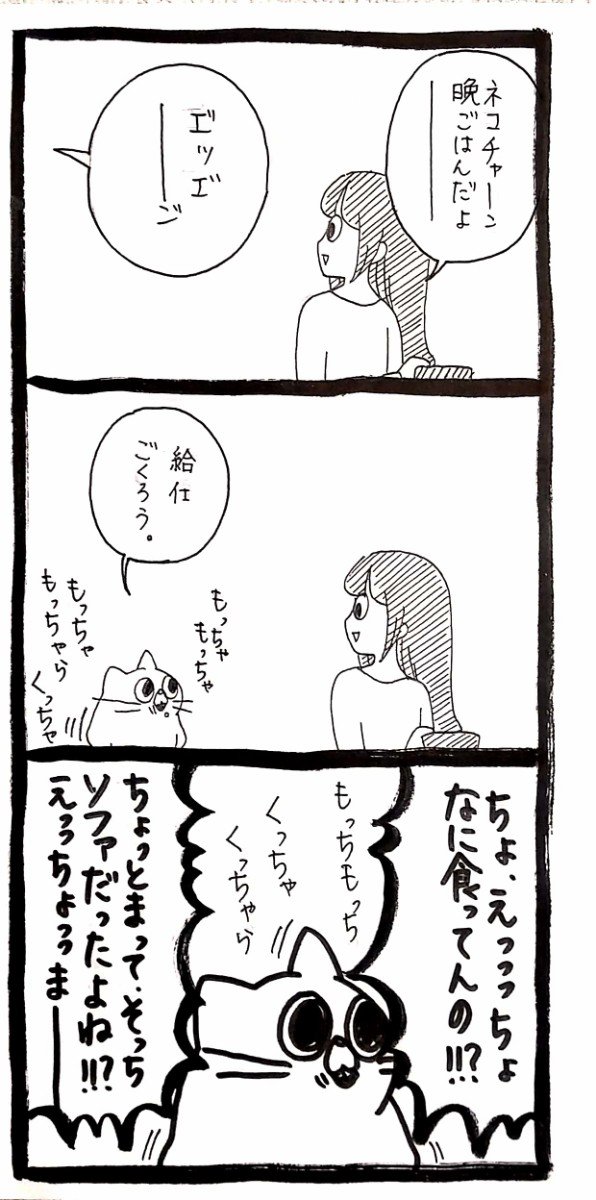 ネコチャーン
晩ごはんだよ
――
エ゙ッエ゙
――ジ
給仕
ごくろう。
もっちゃ
もっちゃ
もっちゃ
もっちゃら
くっちゃ
ちょ、えっっっちょ
なに食ってんの!!?
もっちもっち
くっちゃ
くっちゃら
ちょっとまって、そっち
ソファだったよね!!?
えっっちょっっま――